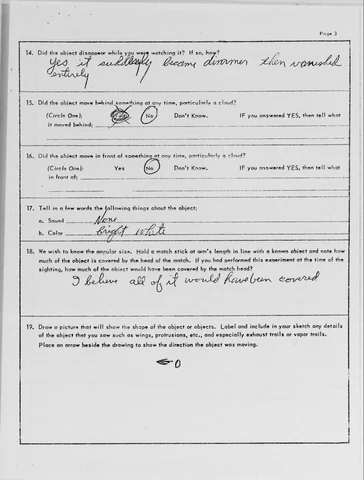 Page 3
14. Did the object disappear while you were watching it? If so, how?
Yes it suddenly became dimmer then vanished
entirely
15. Did the object move behind something at any time, particularly a cloud?
(Circle One): Yes No Don't Know. IF you answered YES, then tell what
it moved behind:
16. Did the object move in front of something at any time, particularly a cloud?
(Circle One): Yes No Don't Know. IF you answered YES, then tell what
in front of:
17. Tell in a few words the following things about the object:
a. Sound None
b. Color Bright White
18. We wish to know the angular size. Hold a match stick at arm's length in line with a known object and note how
much of the object is covered by the head of the match. If you had performed this experiment at the time of the
sighting, how much of the object would have been covered by the match head?
I believe all of it would have been covered
19. Draw a picture that will show the shape of the object or objects. Label and include in your sketch any details
of the object that you saw such as wings, protrusions, etc., and especially exhaust trails or vapor trails.
Place an arrow beside the drawing to show the direction the object was moving.